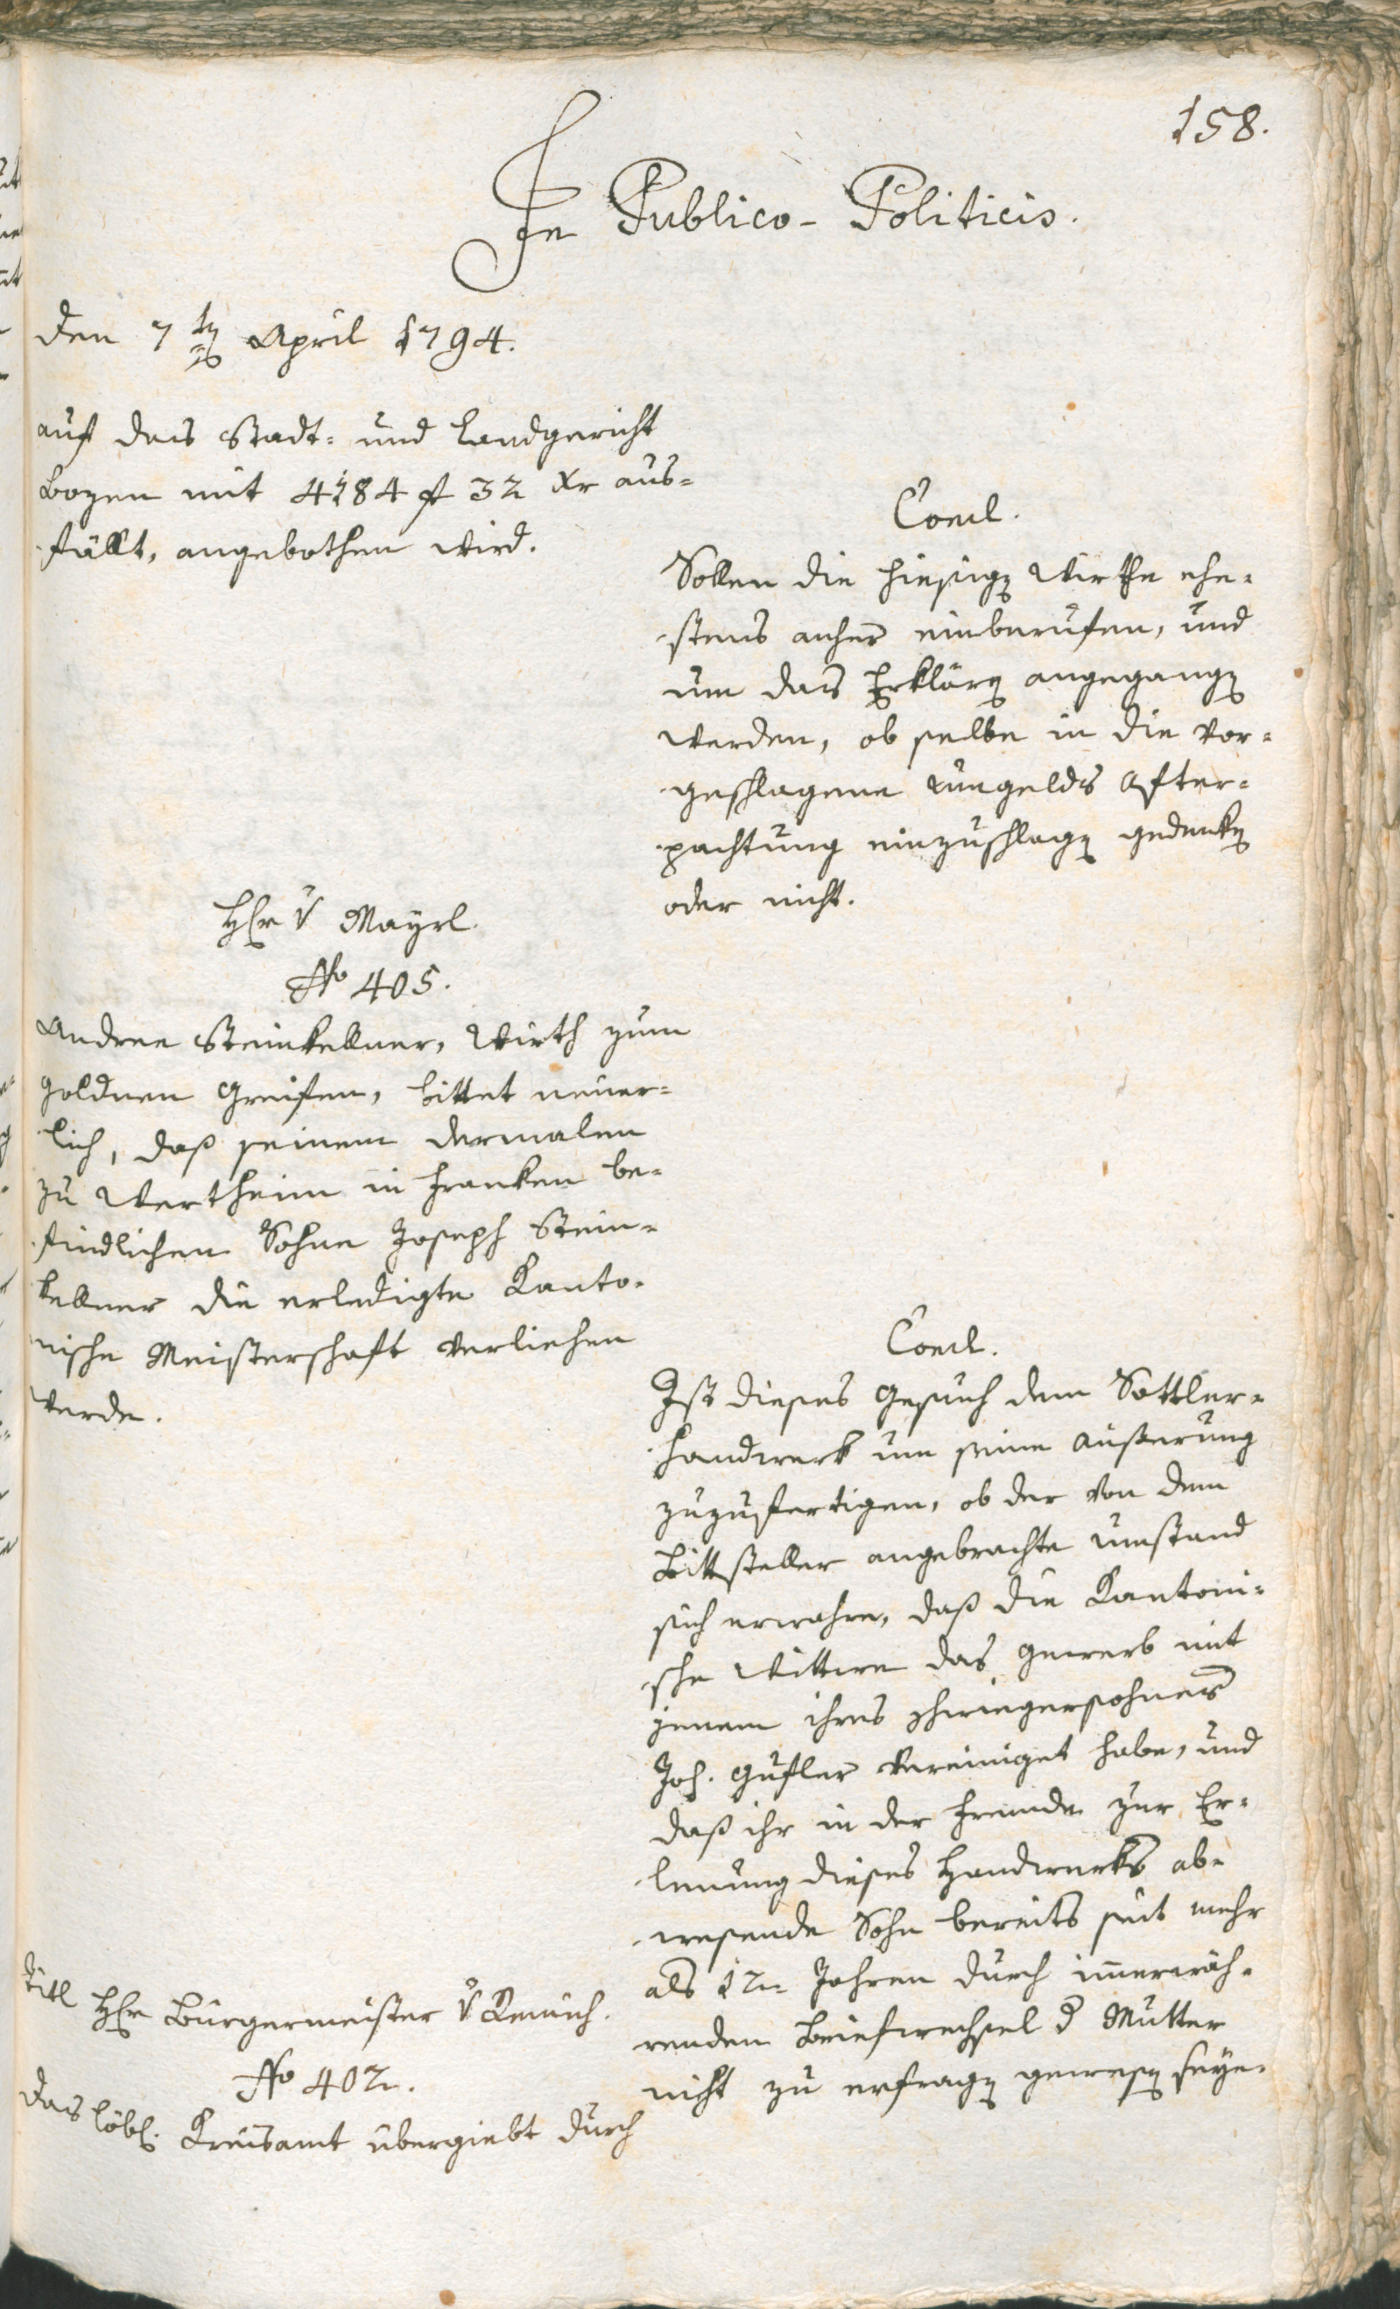 158.
In Publico-Politicis.
Den 7ten April 1794.
auf das Stadt- und Landgericht
Bozen mit 4184 f 32 Xr aus-
fällt, angebothen wird.
Concl.
Sollen die hiesigen Wirthe ehe-
stens anher einberufen, und
um das Erklären angegangen
werden, ob selbe in die vor-
geschlagene Umgelds After-
pachtung einzuschlagen gedenken
oder nicht.
Hr v Mayrl.
No 405.
Andree Steinkellner, Wirth zum
goldnen Greifen, bittet neuer-
lich, daß seinem dermalen
zu Wertheim in Franken be-
findlichen Sohne Joseph Stein-
kellner die erledigte Kanto-
nische Meisterschaft verliehen
werde.
Concl.
Ist dieses Gesuch dem Sattler-
handwerk um seine Äußerung
zuzufertigen, ob der von dem
Bittsteller angebrachte Umstand
sich erwahre, daß die Kantoni-
sche Wittwe das Gewerb mit
jenem ihres Schwiegersohnes
Joh. Gufler vereiniget habe, und
daß ihr in der Fremde zur Er-
lernung dieses Handwerks ab-
wesende Sohn bereits seit mehr
als 12 Jahren durch immerwäh-
renden Briefwechsel d Mutter
nicht zu erfragen gewesen seye.
Titl Hr Bürgermeister v
No 402.
Das löbl. Kreisamt übergiebt durch